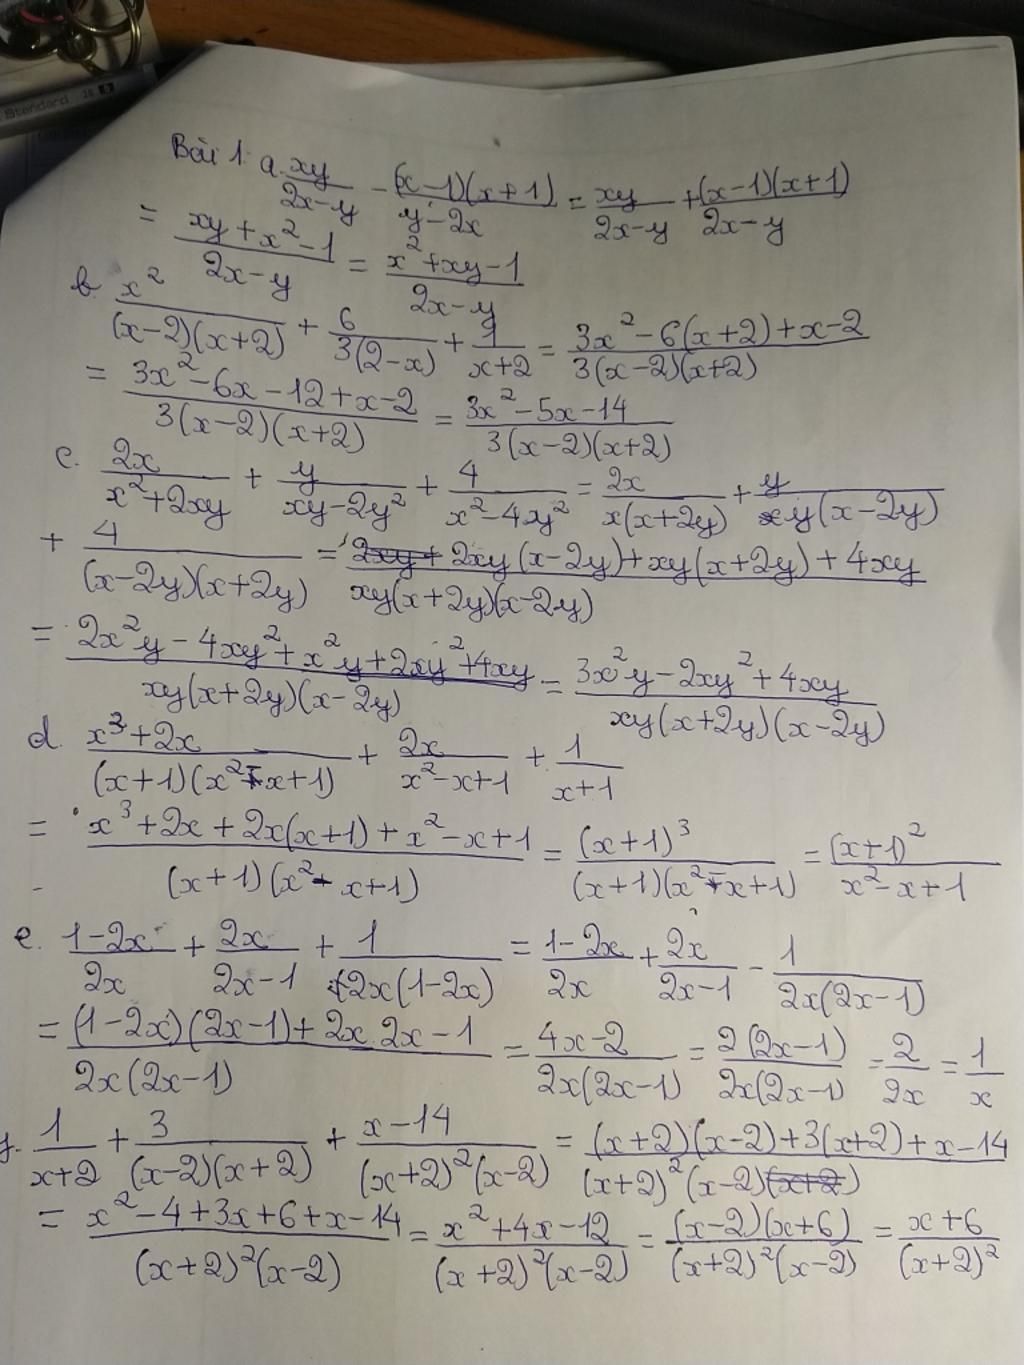 Standard
Bài 1: a. xy/(2x-y) - (x-1)(x+1)/(y-2x) = xy/(2x-y) + (x-1)(x+1)/(2x-y)
= (xy+x²-1)/(2x-y) = (x²+xy-1)/(2x-y)
b. x²/((x-2)(x+2)) + 6/(3(2-x)) + 1/(x+2) = (3x²-6(x+2)+x-2)/(3(x-2)(x+2))
= (3x²-6x-12+x-2)/(3(x-2)(x+2)) = (3x²-5x-14)/(3(x-2)(x+2))
c. 2x/(x²+2xy) + y/(xy-2y²) + 4/(x²-4y²) = 2x/(x(x+2y)) + y/(y(x-2y))
+ 4/((x-2y)(x+2y)) = (2xy(x-2y)+xy(x+2y)+4xy)/(xy(x+2y)(x-2y))
= (2x²y-4xy²+x²y+2xy²+4xy)/(xy(x+2y)(x-2y)) = (3x²y-2xy²+4xy)/(xy(x+2y)(x-2y))
d. (x³+2x)/((x+1)(x²-x+1)) + 2x/(x²-x+1) + 1/(x+1)
= (x³+2x+2x(x+1)+x²-x+1)/((x+1)(x²-x+1)) = (x+1)³/((x+1)(x²-x+1)) = (x+1)²/(x²-x+1)
e. (1-2x)/(2x) + 2x/(2x-1) + 1/(2x(1-2x)) = (1-2x)/(2x) + 2x/(2x-1) - 1/(2x(2x-1))
= ((1-2x)(2x-1)+2x.2x-1)/(2x(2x-1)) = (4x-2)/(2x(2x-1)) = 2(2x-1)/(2x(2x-1)) = 2/(2x) = 1/x
f. 1/(x+2) + 3/((x-2)(x+2)) + (x-14)/((x+2)²(x-2)) = ((x+2)(x-2)+3(x+2)+x-14)/((x+2)²(x-2))
= (x²-4+3x+6+x-14)/((x+2)²(x-2)) = (x²+4x-12)/((x+2)²(x-2)) = (x-2)(x+6)/((x+2)²(x-2)) = (x+6)/(x+2)²